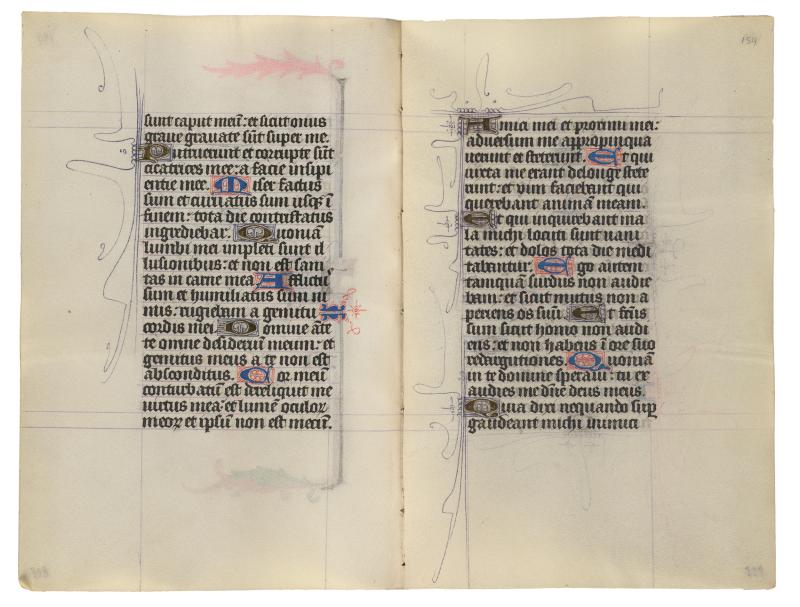 sunt caput meū: et sicut onus
graue grauate sūt super me.
Putruerunt et corrupte sūt
cicatrices mee: a facie insipi
entie mee. Miser factus
sum et curuatus sum usqꝫ ī
finem: tota die contristatus
ingrediebar. Quoniā
lumbi mei impleti sunt il
lusionibus: et non est sani
tas in carne mea. Afflictꝰ
sum et humiliatus sum ni
mis: rugiebam a gemitu
cordis mei. Domine āte
te omne desiderium meum: et
gemitus meus a te non est
absconditus. Cor meū
conturbatū est dereliquit me
uirtus mea: et lumē oculoꝝ
meoꝝ et ipsū non est mecū.
154
Amici mei et proximi mei:
aduersum me appropinqua
uerunt et steterunt. Et qui
iuxta me erant de longe stete
runt: et uim faciebant qui
querebant animā meam.
Et qui inquirebant ma
la michi locuti sunt uani
tates: et dolos tota die medi
tabantur. Ego autem
tamquā surdus non audie
bam: et sicut mutus non a
periens os suū. Et factꝰ
sum sicut homo non audi
ens: et non habens ī ore suo
redargutiones. Quoniā
in te domine speraui: tu ex
audies me dn̄e deus meus.
Quia dixi nequando suꝑ
gaudeant michi inimici